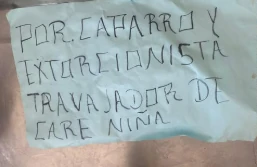 POR. CAHARRO Y
EXTORCIONISTA
TRAVAJADOR DE
CARE NIÑA